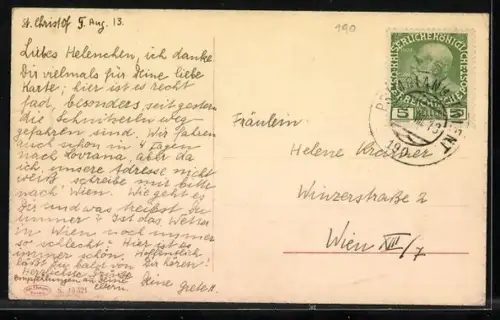 St. Christof 9. Aug. 13.
190
Liebes Helenchen, ich danke
Dir vielmals für Deine liebe
Karte; hier ist es recht
fad, besonders seit gestern
die Schnitzerln weg-
gefahren sind. Wir fahren
auch schon in 4 Tagen
nach Lovrana, aber da
ich unsere Adresse nicht
weiß schreibe mir bitte
nach Wien. Wie geht es
Dir und was treibst Du
immer? Ist das Wetter
in Wien noch immer
so schlecht? Hier ist es
immer schön. Hoffentlich
lässt Du bald von Dir hören!
Herzlichste Grüße
Empfehlungen an Deine
Eltern.
Deine Grete H.
Fräulein
Helene
Winzerstraße 2
Wien XIII/7
KAISERLICHE KÖNIGLICHE
ÖSTERREICHISCHE POST
5 5
190